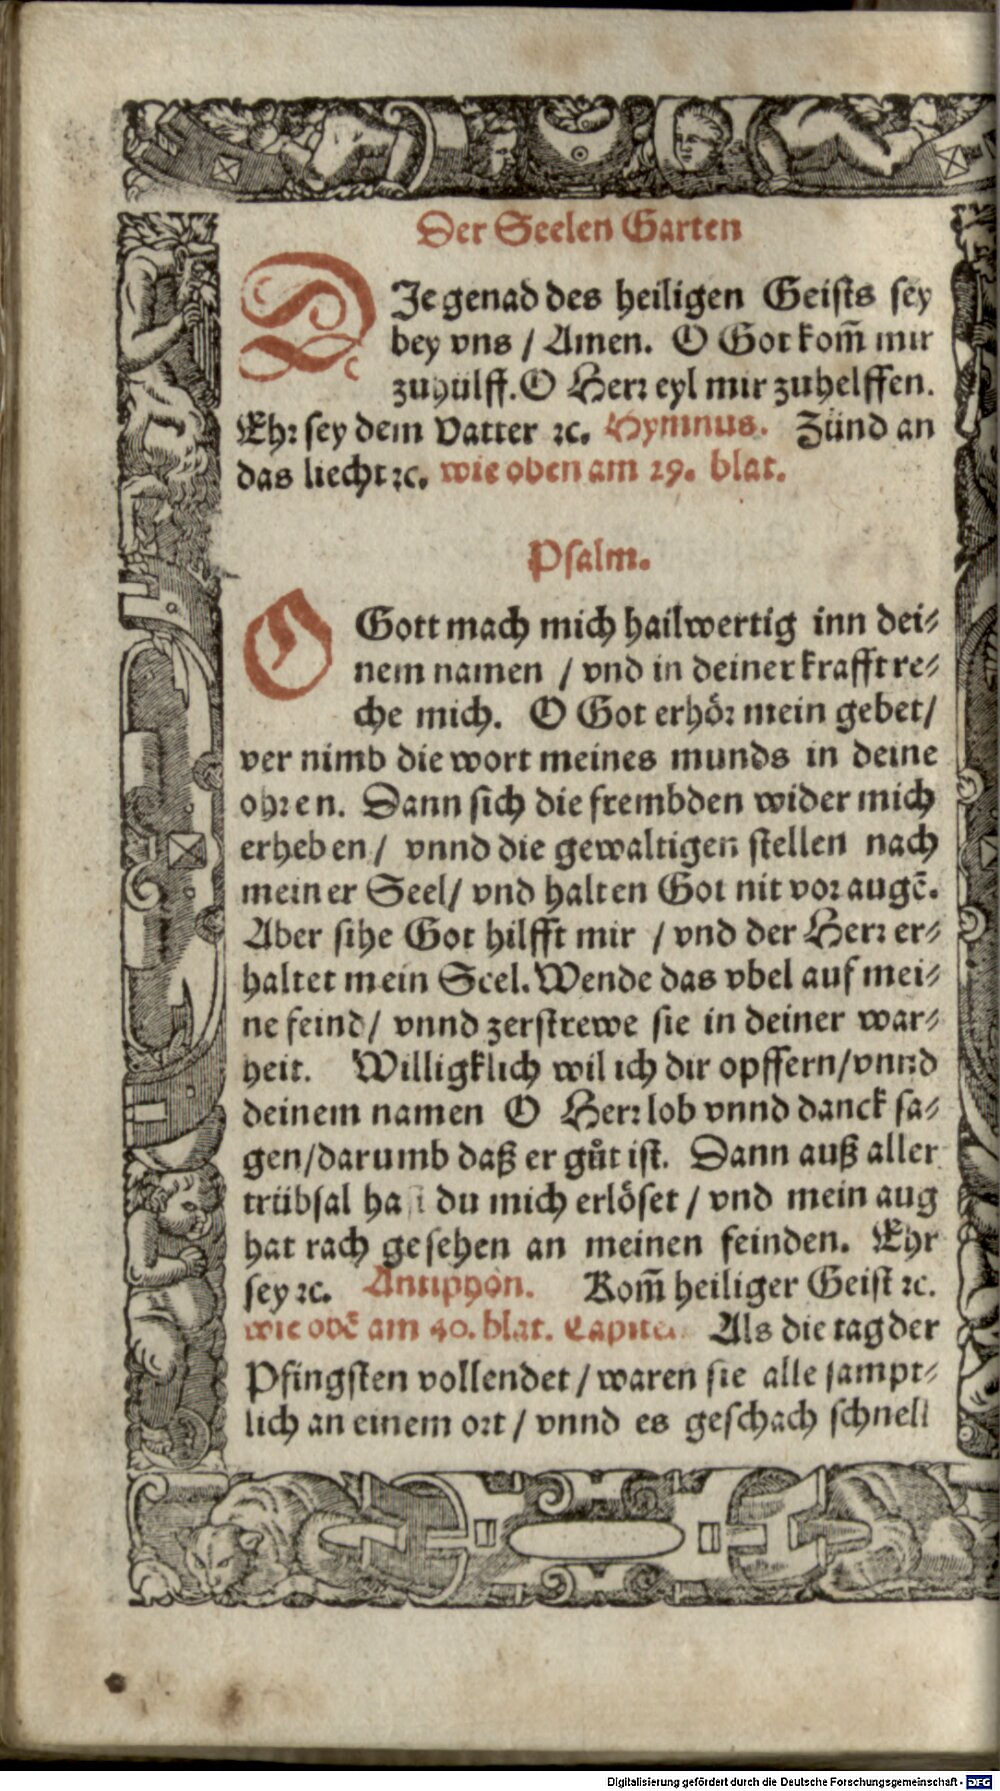 Der Seelen Garten
DJe genad des heiligen Geists sey
bey vns / Amen. O Got kom̄ mir
zuhülff. O Herr eyl mir zuhelffen.
Ehr sey dem Vatter ꝛc. Hymnus. Zünd an
das liecht ꝛc. wie oben am 29. blat.
Psalm.
O Gott mach mich hailwertig inn dei⸗
nem namen / vnd in deiner krafft re⸗
che mich. O Got erhoͤr mein gebet /
ver nimb die wort meines munds in deine
ohren. Dann sich die frembden wider mich
erheben / vnnd die gewaltigen stellen nach
meiner Seel / vnd halten Got nit vor augē.
Aber sihe Got hilfft mir / vnd der Herr er⸗
haltet mein Seel. Wende das vbel auf mei⸗
ne feind / vnnd zerstrewe sie in deiner war⸗
heit. Willigklich wil ich dir opffern / vnnd
deinem namen O Herr lob vnnd danck sa⸗
gen / darumb daß er guͦt ist. Dann auß aller
trübsal hast du mich erloͤset / vnd mein aug
hat rach gesehen an meinen feinden. Ehr
sey ꝛc. Antiphon. Kom̄ heiliger Geist ꝛc.
wie obē am 40. blat. Capitel. Als die tag der
Pfingsten vollendet / waren sie alle sampt⸗
lich an einem ort / vnnd es geschach schnell
Digitalisierung gefördert durch die Deutsche Forschungsgemeinschaft - DFG